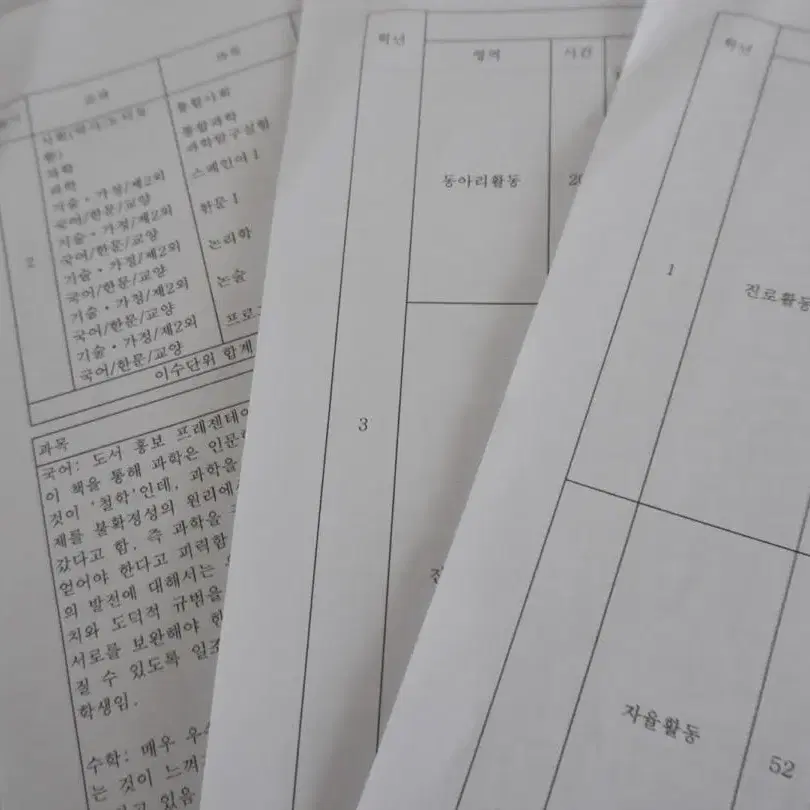 학기
교과
과목
사회(역사/도덕포
함)
통합사회
과학
통합과학
과학
과학탐구실험
기술・가정/제2외
국어/한문/교양
스페인어 I
기술・가정/제2외
국어/한문/교양
한문 I
2
기술・가정/제2외
국어/한문/교양
논리학
기술・가정/제2외
국어/한문/교양
논술
기술・가정/제2외
국어/한문/교양
프로
이수단위 합계
과목
국어: 도서 홍보 프레젠테이
이 책을 통해 과학은 인문
것이 '철학'인데, 과학을
제를 불확정성의 원리에
갔다고 함. 즉 과학을
얻어야 한다고 피력함
의 발전에 대해서는
치와 도덕적 규범을
서로를 보완해야 한
질 수 있도록 일조
학생임.
수학: 매우 우수
는 것이 느껴
하고 있음
학년
영역
시간
동아리활동
20
3
학년
1
진로활동
자율활동
52